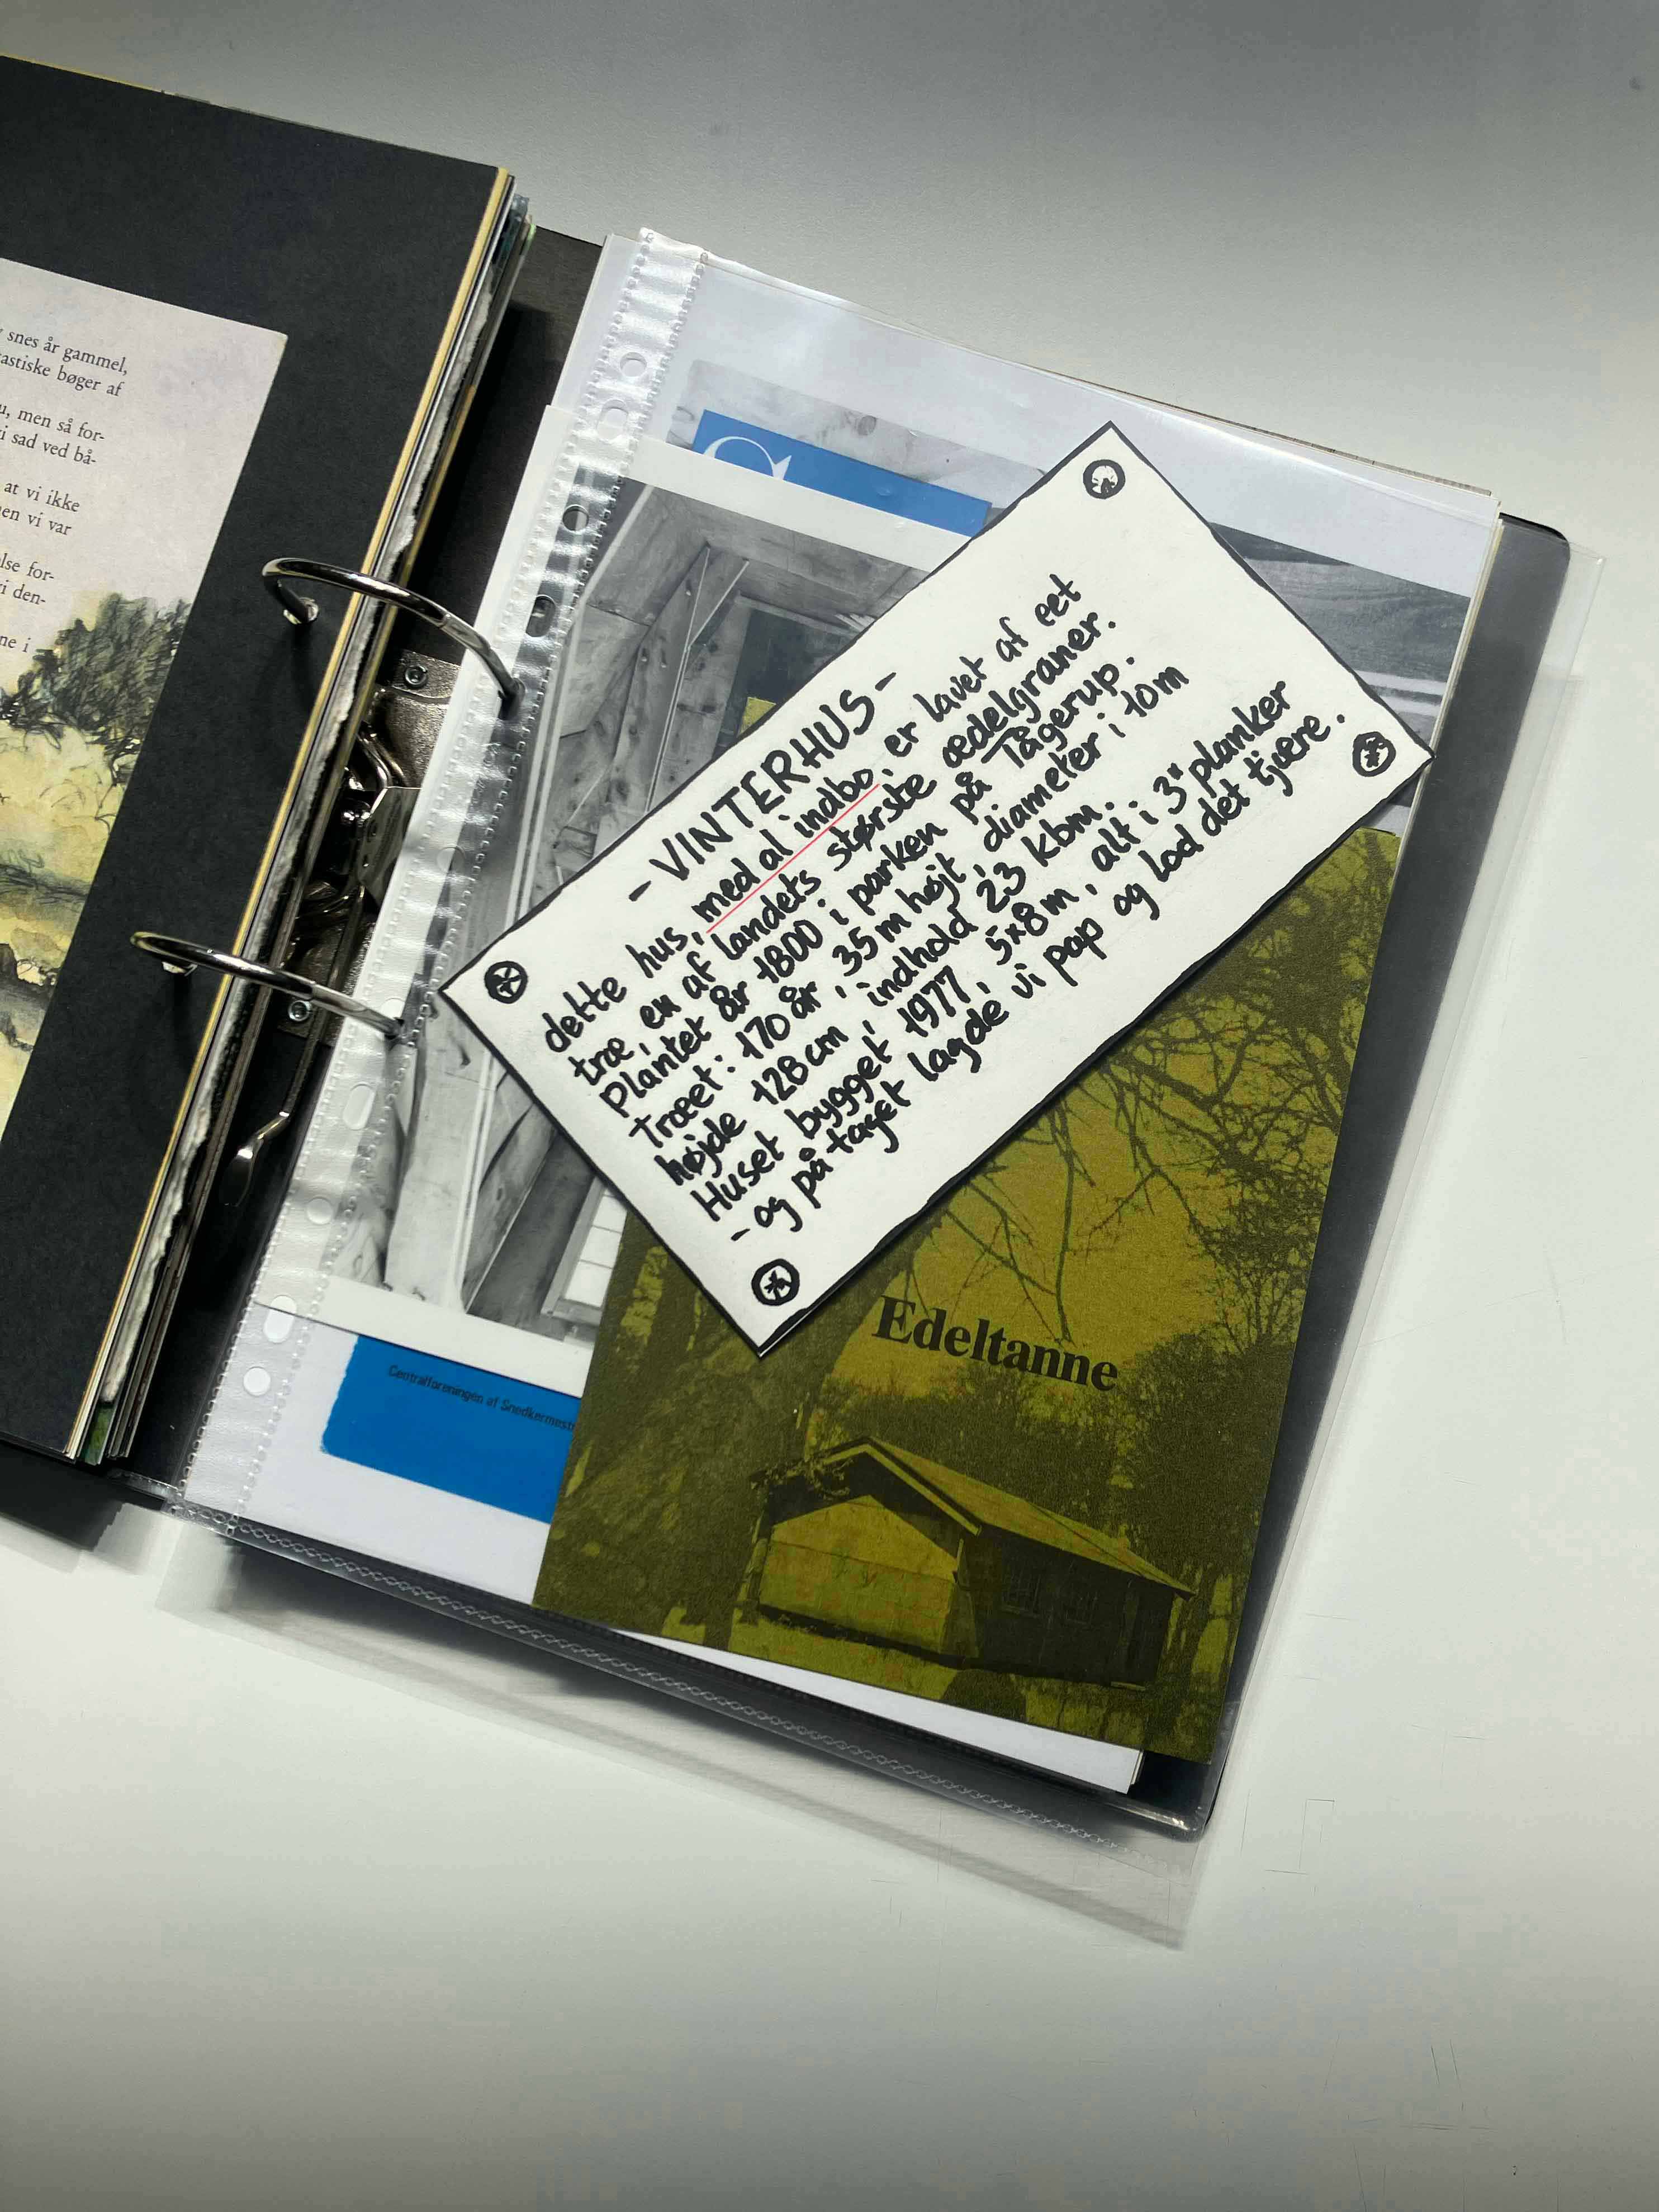 snes år gammel,
astiske bøger af
men så for-
i sad ved bå-
at vi ikke
en vi var
lse for-
i den-
ne i
- VINTERHUS -
dette hus, med al indbo, er lavet af eet
træ, en af landets største ædelgraner.
Plantet år 1800 i parken på Tågerup.
Træet: 170 år, 35 m højt, diameter i 10m
højde 128 cm, indhold 23 kbm.
Huset bygget 1977, 5x8m, alt i 3" planker
- og på taget lagde vi pap og lod det tjære.
Centralforeningen af Snedkermest
Edeltanne